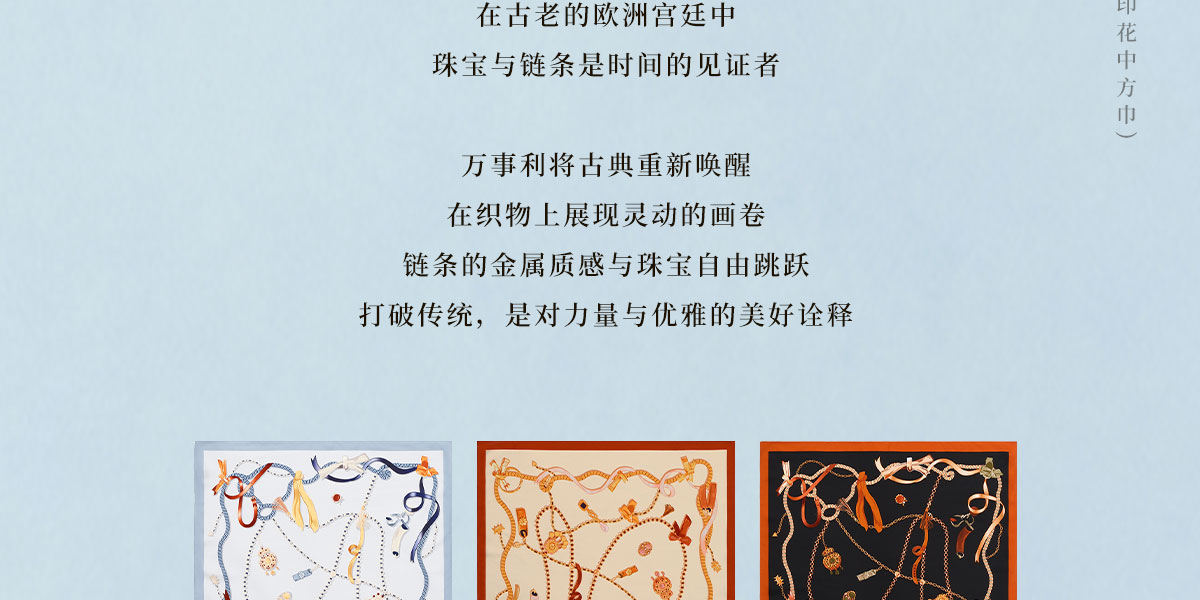 在古老的欧洲宫廷中
珠宝与链条是时间的见证者
万事利将古典重新唤醒
在织物上展现灵动的画卷
链条的金属质感与珠宝自由跳跃
打破传统，是对力量与优雅的美好诠释
印花中方巾）